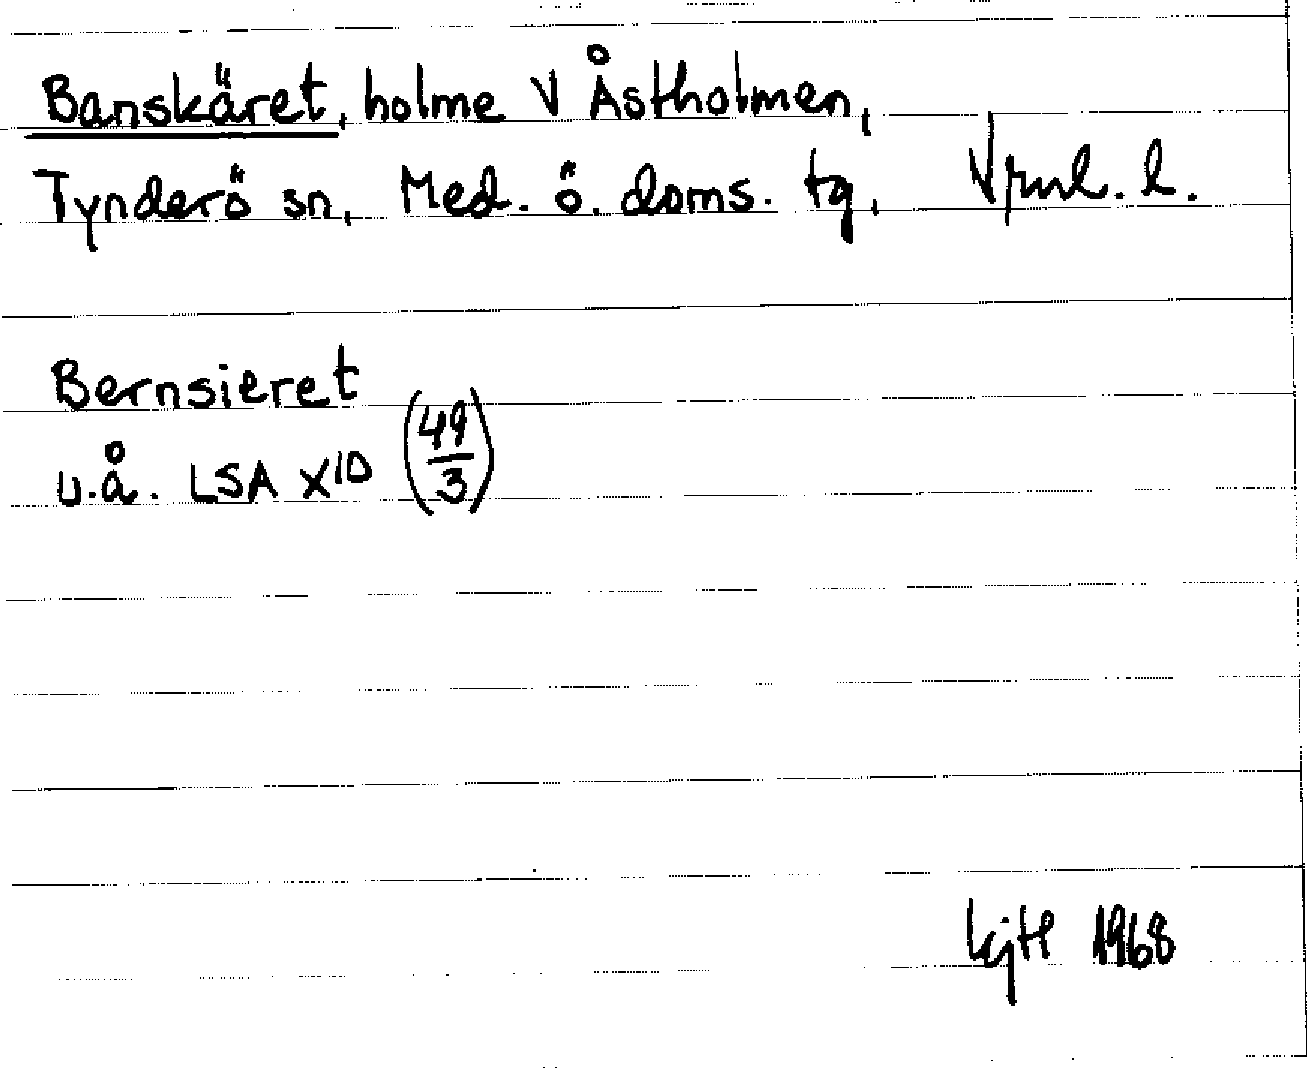 Banskäret, holme V Åstholmen,
Tynderö sn, Med. ö. doms. tg, Vrnl. l.
Bernsieret
u.å. LSA X10 (49/3)
1968